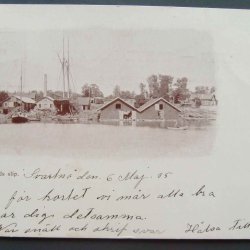 slip.
Svartnö den 6 Maj 05
för kortet vi mår alla bra
dig detsamma.
snällt och skrif svar Hälsa